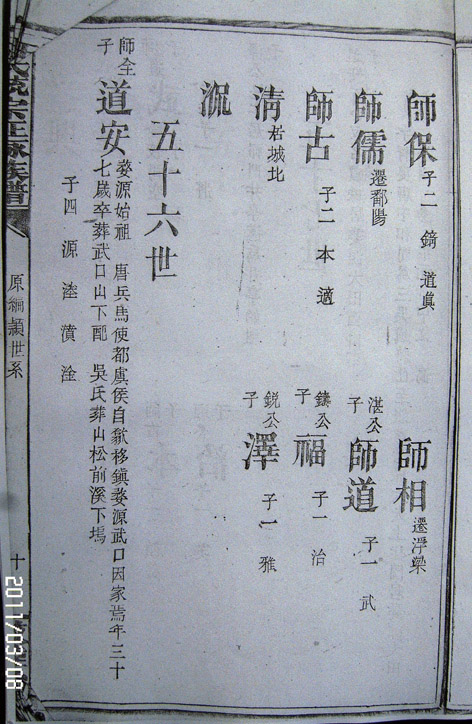 師保 子二 錡 道眞
師相 遷浮梁
師儒 遷鄱陽
湛公子 師道 子一 武
師古 子二 本 適
鐬公子 福 子一 治
清 栝城北
鋭公子 澤 子一 雅
沉
五十六世
師全子 道安 婺源始祖 唐兵馬使都虞侯自歙移鎮婺源武口因家焉年三十
七歲卒葬武口山下配 吳氏葬山松前溪下塢
子四 源 淕 濆 淦
宗正脉族譜
原編纇世系
十
2011/03/08